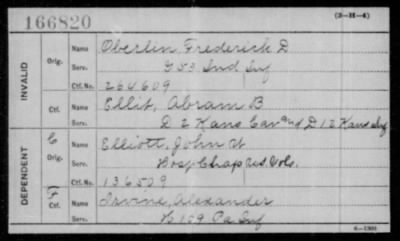 166820
(3-H-4)
INVALID
Orig.
Name Oberlin, Frederick D
Serv. G 53 Ind Inf
Ctf. No. 264609
Ctf.
Name Ellit, Abram B
Serv. D 2 Kans Cav and D 12 Kans Inf
DEPENDENT
C
Orig.
Name Elliott, John W
Serv. Hosp Chap Vols.
Ctf. No. 136509
Ctf.
Name Irvine, Alexander
Serv. H 109 Pa Inf